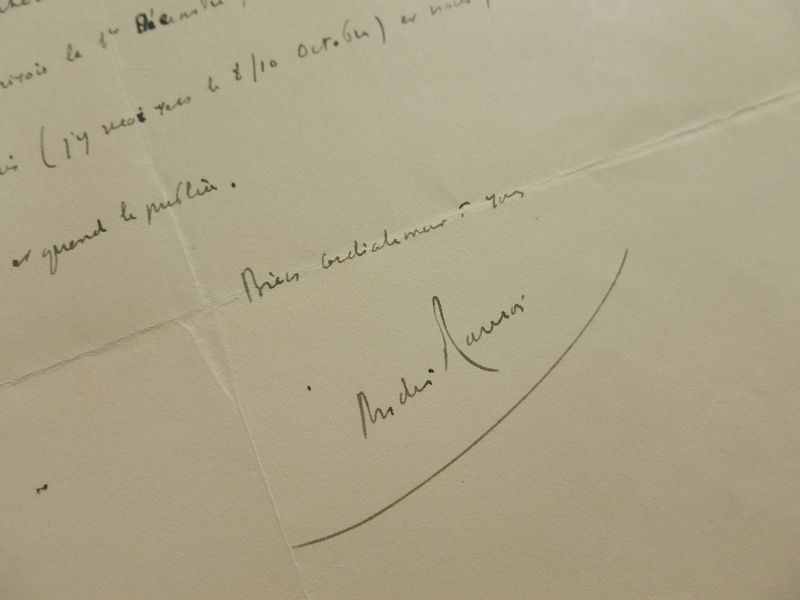 le 1er Décembre,
(j'y serai vers le 8/10 Octobre) et nous
et quand le publier.
Bien cordialement à vous
André Maurois